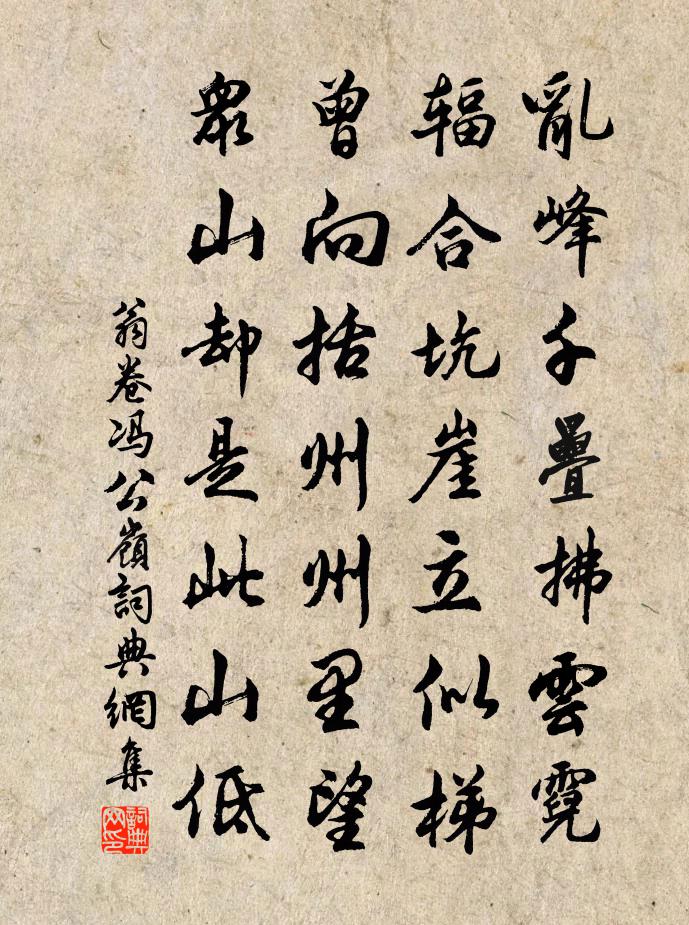 亂峰千疊拂雲霓
辐合坑崖立似梯
曾向括州州里望
衆山却是此山低
翁卷冯公嶺詞典網集
詞典网印